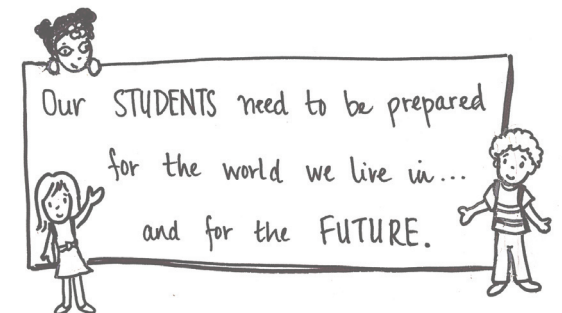 Our STUDENTS need to be prepared
for the world we live in...
and for the FUTURE.